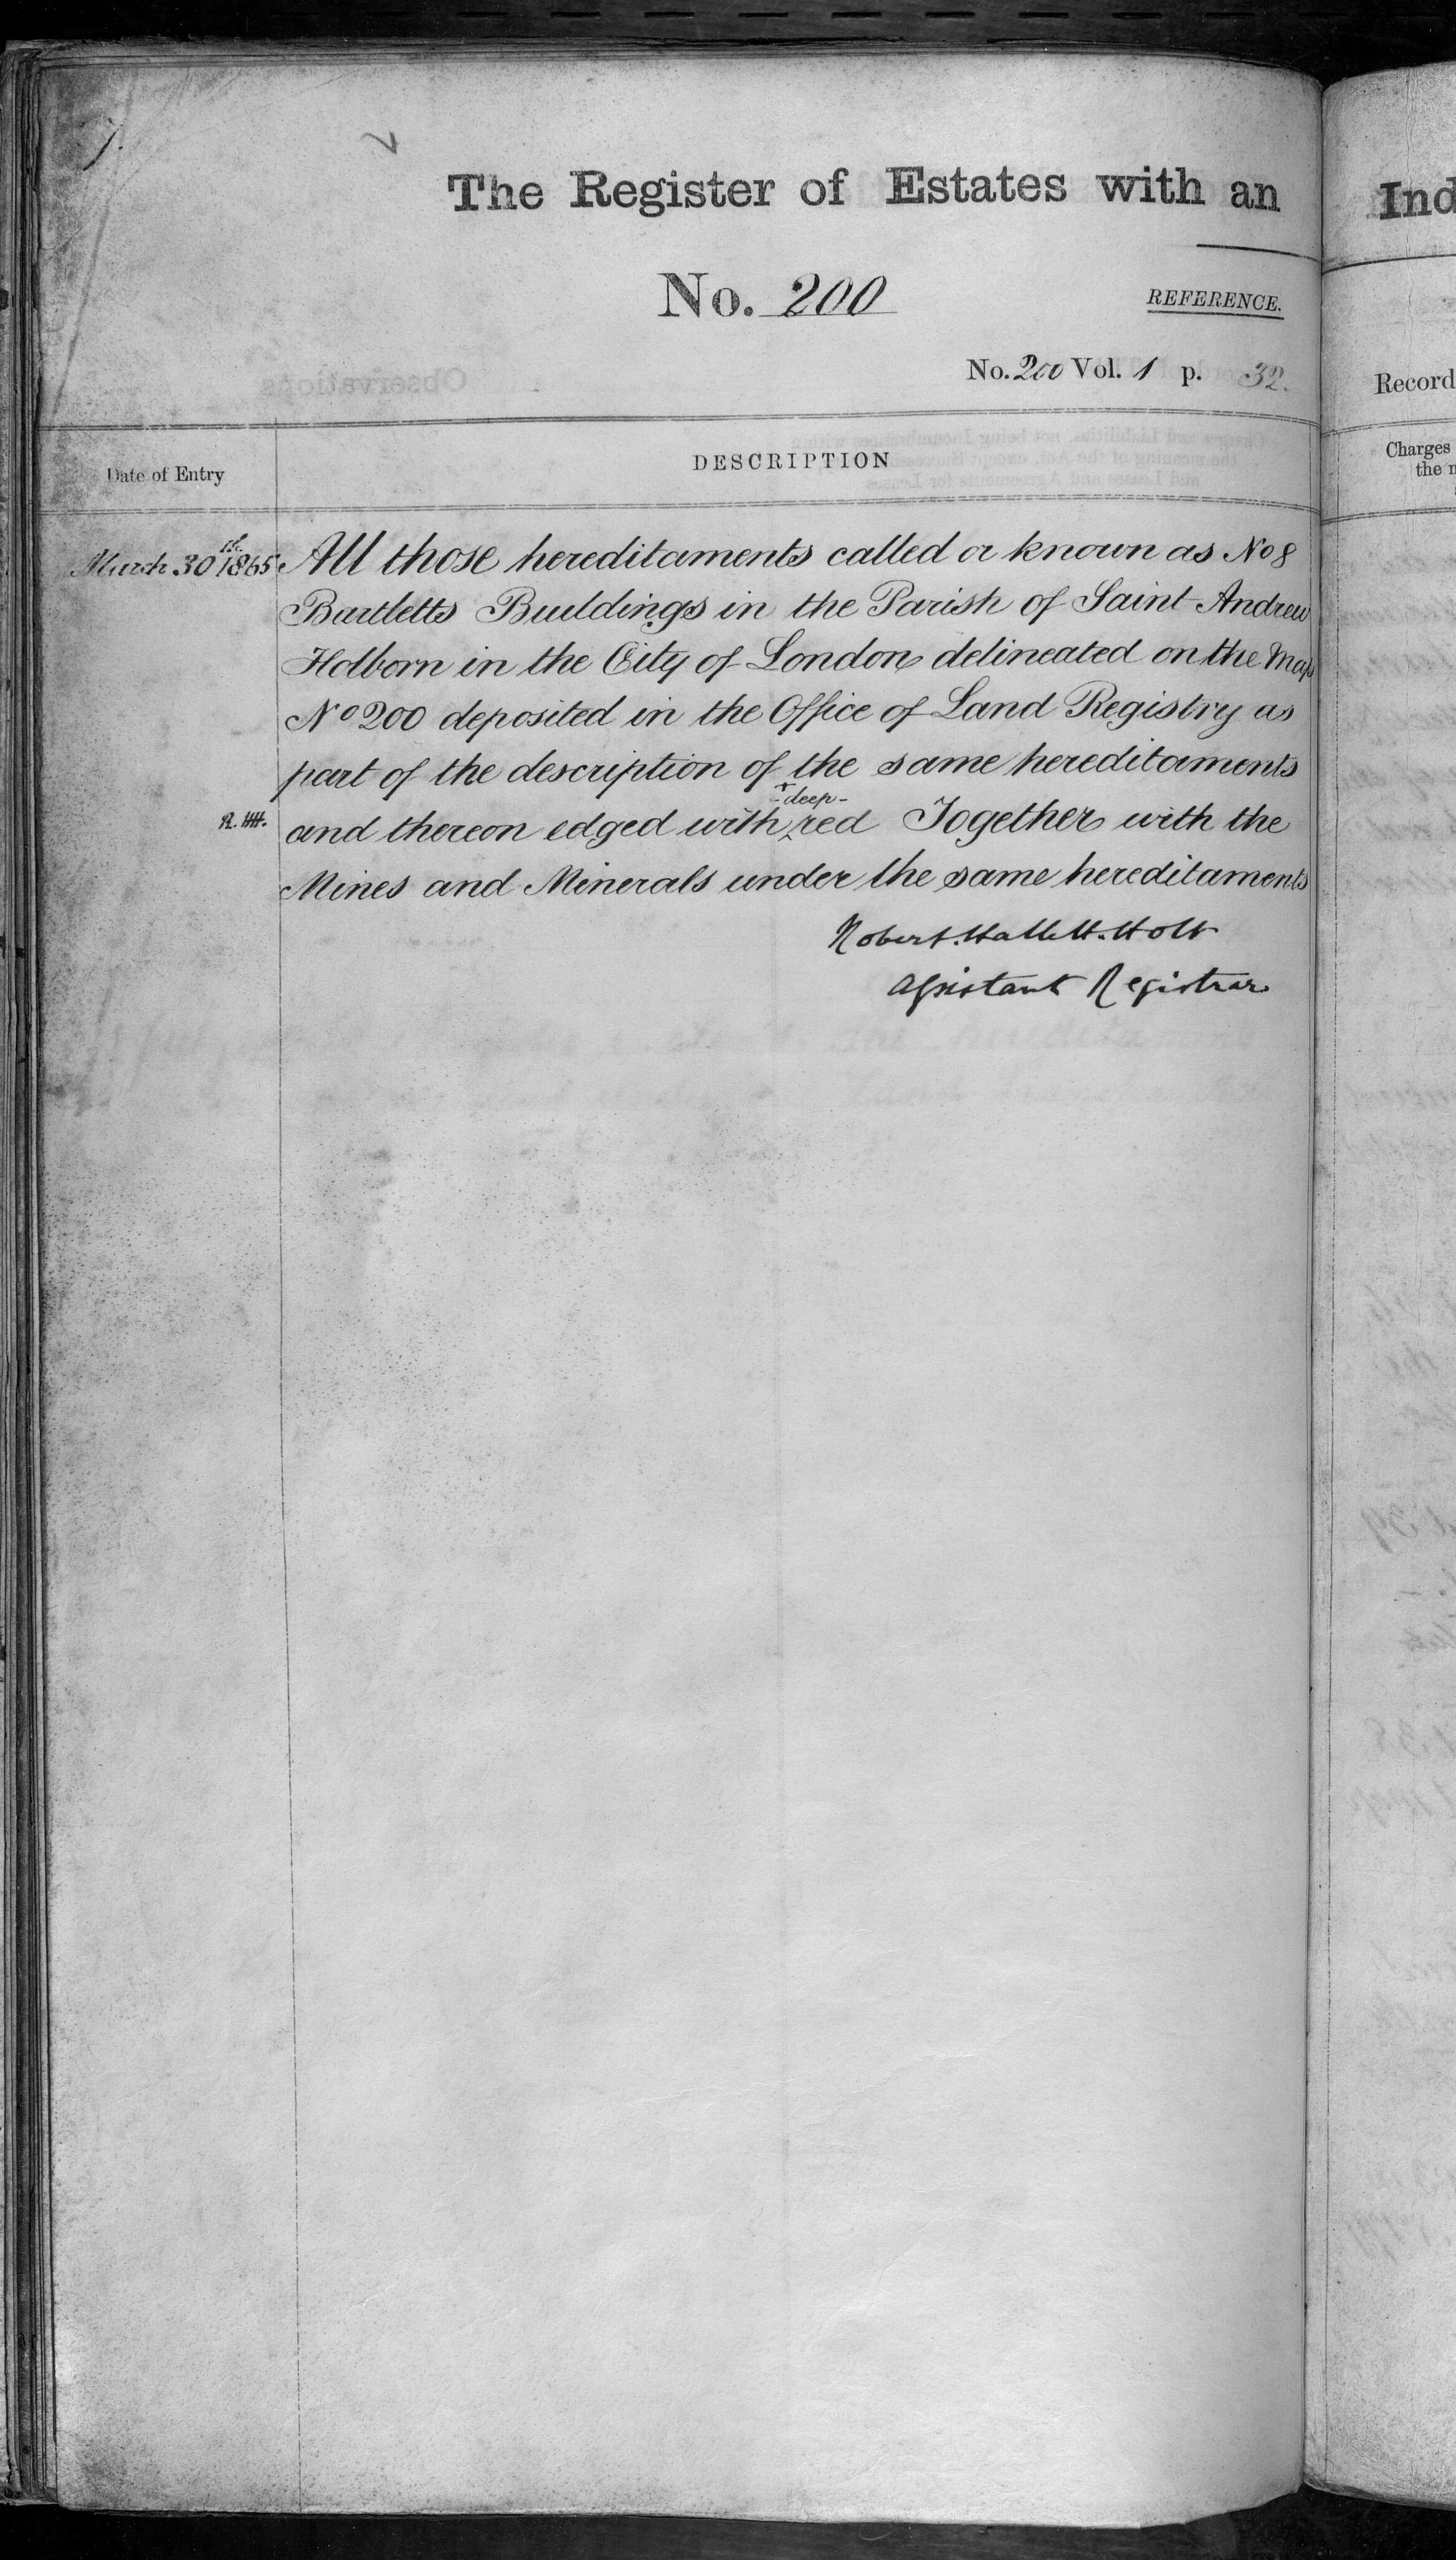 The Register of Estates with an
No. 200
REFERENCE.
No. 200 Vol. 1 p. 32.
Date of Entry
DESCRIPTION
March 30th 1865
All those hereditaments called or known as No 8
Bartletts Buildings in the Parish of Saint Andrew
Holborn in the City of London delineated on the Map
No 200 deposited in the Office of Land Registry as
part of the description of the same hereditaments
-deep-
and thereon edged with red Together with the
Mines and Minerals under the same hereditaments
Robert. Hallett. Holt
Assistant Registrar
Ind
Record
Charges